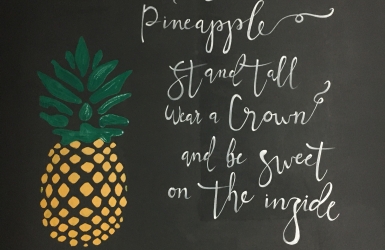 Pineapple
Stand tall
Wear a Crown
and be sweet
on the inside